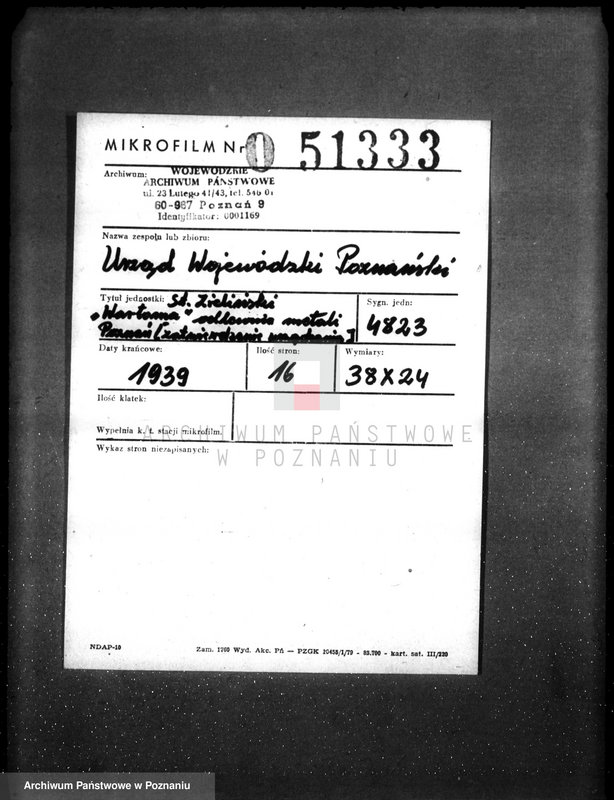 MIKROFILM Nr 0 51333
Archiwum: WOJEWÓDZKIE
ARCHIWUM PAŃSTWOWE
ul. 23 Lutego 41/43, tel. 546 01
60-967 Poznań 9
Identyfikator: 0001169
Nazwa zespołu lub zbioru:
Urząd Wojewódzki Poznański
Tytuł jednostki: St. Zieliński
„Wartama" odlewnia metali
Poznań [zatwierdzenie urządzenia]
Sygn. jedn:
4823
Daty krańcowe:
1939
Ilość stron:
16
Wymiary:
38X24
Ilość klatek:
Wypełnia k. t. stacji mikrofilm.
Wykaz stron niezapisanych:
ARCHIWUM PAŃSTWOWE
W POZNANIU
NDAP-10
Zam. 1260 Wyd. Akc. Pń — PZGK 20458/I/79 - 83.700 - kart. sat. III/220
Archiwum Państwowe w Poznaniu